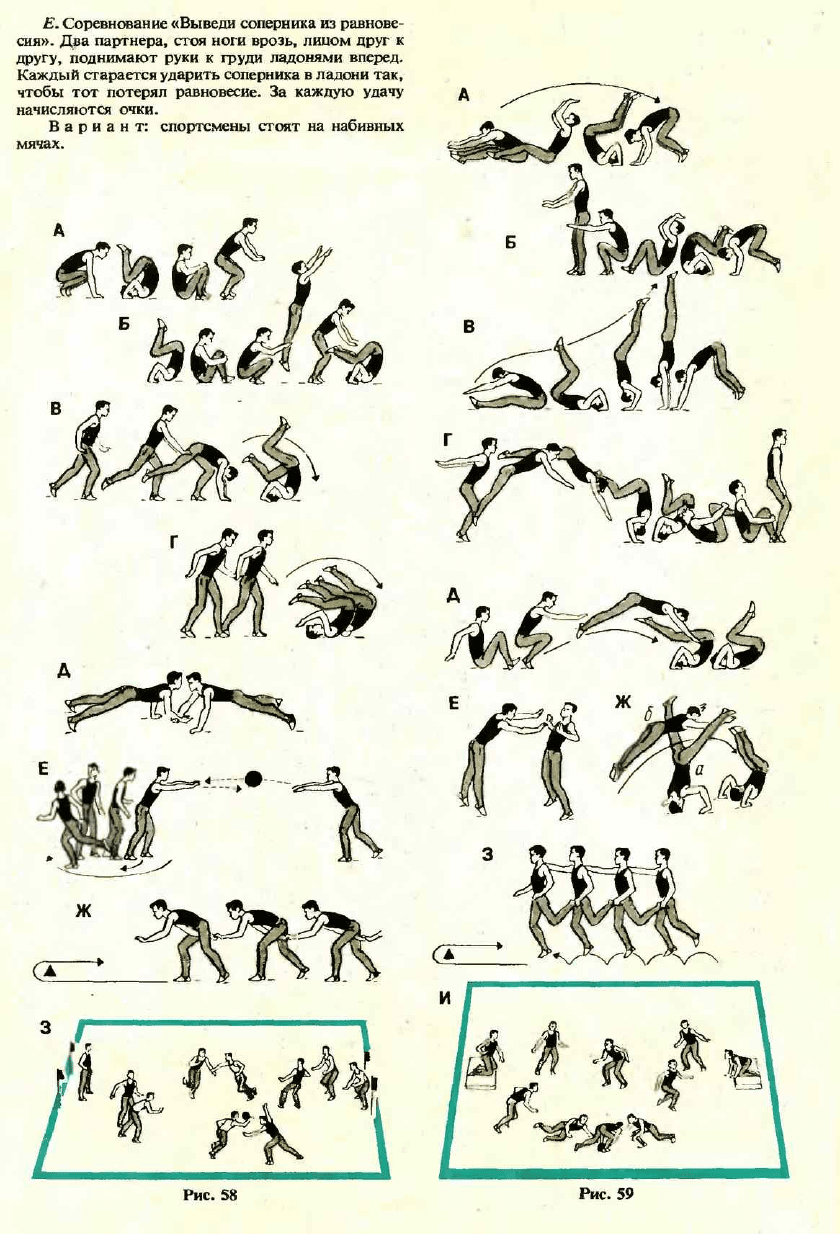 Е. Соревнование «Выведи соперника из равнове-
сия». Два партнера, стоя ноги врозь, лицом друг к
другу, поднимают руки к груди ладонями вперед.
Каждый старается ударить соперника в ладони так,
чтобы тот потерял равновесие. За каждую удачу
начисляются очки.
Вариант: спортсмены стоят на набивных
мячах.
А
Б
В
Г
Д
Е
Ж
З
Рис. 58
А
Б
В
Г
Д
Е
Ж
б
а
З
И
Рис. 59